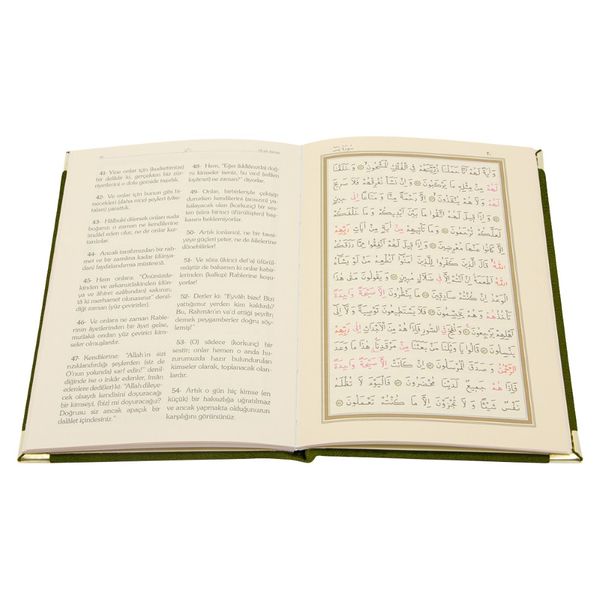 41- Yine onlar için (kudretimize)
bir delildir ki, gerçekten biz zür-
riyetlerini o dolu gemide taşıdık.
42- Ve onlar için bunun gibi bi-
necekleri (daha nice) şeyleri
yarattık.
43- Hâlbuki dilersek onları suda
boğarız; o zaman ne kendilerine
imdâd eden olur, ne de onlar kur-
tarılırlar.
44- Ancak tarafımızdan bir rah-
met ve bir zamâna kadar (dünya-
dan) faydalandırma müstesnâ.
45- Hem onlara: "Önünüzde-
kinden ve arkanızdakinden (dün-
ya ve âhiret azâbından) sakının;
tâ ki merhamet olunasınız" denil-
diği zaman (yüz çevirirler).
46- Ve onlara ne zaman Rable-
rinin âyetlerinden bir âyet gelse,
mutlaka ondan yüz çevirici kim-
seler olmuşlardır.
47- Kendilerine: "Allah'ın sizi
rızıklandırdığı şeylerden (siz de
O'nun yolunda) sarf edin!" denil-
diğinde ise o inkâr edenler, îmân
edenlere dedi(ler) ki: "Allah dileye-
cek olsaydı kendisini doyuracağı
bir kimseyi, (biz) mi doyuracağız?
Doğrusu siz ancak apaçık bir
dalâlet içindesiniz."
48- Hem, "Eğer (iddiânızda) doğ-
ru kimseler iseniz, bu vaad (edilen
kıyâmet) ne zaman?" diyorlar.
49- Onlar, birbirleriyle çekişip
dururken kendilerini (ansızın) ya-
kalayacak olan (korkunç) bir ses-
den (sûra birinci üfürülüşten) baş-
kasını beklemiyorlar.
50- Artık (onlar) ne bir tavsi-
yeye güçleri yeter, ne de âilelerine
dönebilirler.
51- Ve sûra (ikinci def'a) üfürül-
müştür de bakarsın ki onlar kabir-
lerinden (kalkıp) Rablerine koşu-
yorlar.
52- Derler ki: "Eyvâh bize! Bizi
yattığımız yerden kim kaldırdı?
Bu, Rahmân'ın va'd ettiği şeydir;
demek peygamberler doğru söyle-
miş!"
53- (O) sâdece (korkunç) bir
sestir; onlar hemen o anda hu-
zurumuzda hazır bulundurulan
kimseler olarak, toplanacak olan-
lardır.
54- Artık o gün hiç kimse (en
küçük) bir haksızlığa uğratılmaz
ve ancak yapmakta olduğunuzun
karşılığını görürsünüz.
وَاٰيَةٌ لَهُمْ اَنَّا حَمَلْنَا ذُرِّيَّتَهُمْ فِى الْفُلْكِ الْمَشْحُونِ وَخَلَقْنَا
لَهُمْ مِنْ مِثْلِهِ مَا يَرْكَبُونَ وَاِنْ نَشَأْ نُغْرِقْهُمْ فَلَا صَرِيخَ
لَهُمْ وَلَا هُمْ يُنْقَذُونَ اِلَّا رَحْمَةً مِنَّا وَمَتَاعًا اِلٰى
حِينٍ وَاِذَا قِيلَ لَهُمُ اتَّقُوا مَا بَيْنَ اَيْدِيكُمْ وَمَا خَلْفَكُمْ
لَعَلَّكُمْ تُرْحَمُونَ وَمَا تَأْتِيهِمْ مِنْ اٰيَةٍ مِنْ اٰيَاتِ رَبِّهِمْ
اِلَّا كَانُوا عَنْهَا مُعْرِضِينَ وَاِذَا قِيلَ لَهُمْ اَنْفِقُوا مِمَّا رَزَقَكُمُ
اللّٰهُ قَالَ الَّذِينَ كَفَرُوا لِلَّذِينَ اٰمَنُوا اَنُطْعِمُ مَنْ لَوْ يَشَاءُ
اللّٰهُ اَطْعَمَهُ اِنْ اَنْتُمْ اِلَّا فِى ضَلَالٍ مُبِينٍ وَيَقُولُونَ مَتٰى هٰذَا
الْوَعْدُ اِنْ كُنْتُمْ صَادِقِينَ مَا يَنْظُرُونَ اِلَّا صَيْحَةً وَاحِدَةً
تَأْخُذُهُمْ وَهُمْ يَخِصِّمُونَ فَلَا يَسْتَطِيعُونَ تَوْصِيَةً وَلَا اِلٰى
اَهْلِهِمْ يَرْجِعُونَ وَنُفِخَ فِى الصُّورِ فَاِذَا هُمْ مِنَ الْاَجْدَاثِ اِلٰى رَبِّهِمْ
يَنْسِلُونَ قَالُوا يَا وَيْلَنَا مَنْ بَعَثَنَا مِنْ مَرْقَدِنَا هٰذَا مَا وَعَدَ
الرَّحْمٰنُ وَصَدَقَ الْمُرْسَلُونَ اِنْ كَانَتْ اِلَّا صَيْحَةً وَاحِدَةً
فَاِذَا هُمْ جَمِيعٌ لَدَيْنَا مُحْضَرُونَ فَالْيَوْمَ لَا تُظْلَمُ
نَفْسٌ شَيْئًا وَلَا تُجْزَوْنَ اِلَّا مَا كُنْتُمْ تَعْمَلُونَ